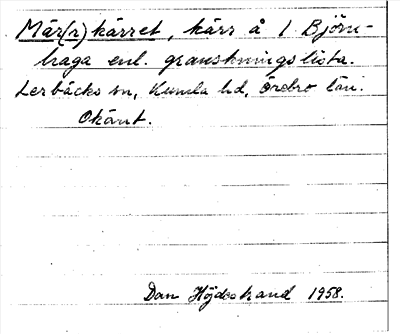 Mär(r)kärret, kärr å 1 Björn-
haga enl. granskningslista.
Lerbäcks sn, Kumla hd, Örebro län.
Okänt.
Dan Höjdestrand 1958.